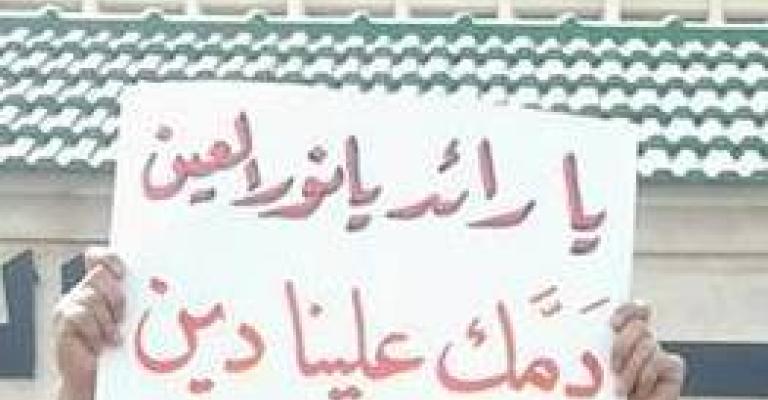 يا رائد يا نور العين
دَمَّك علينا دين